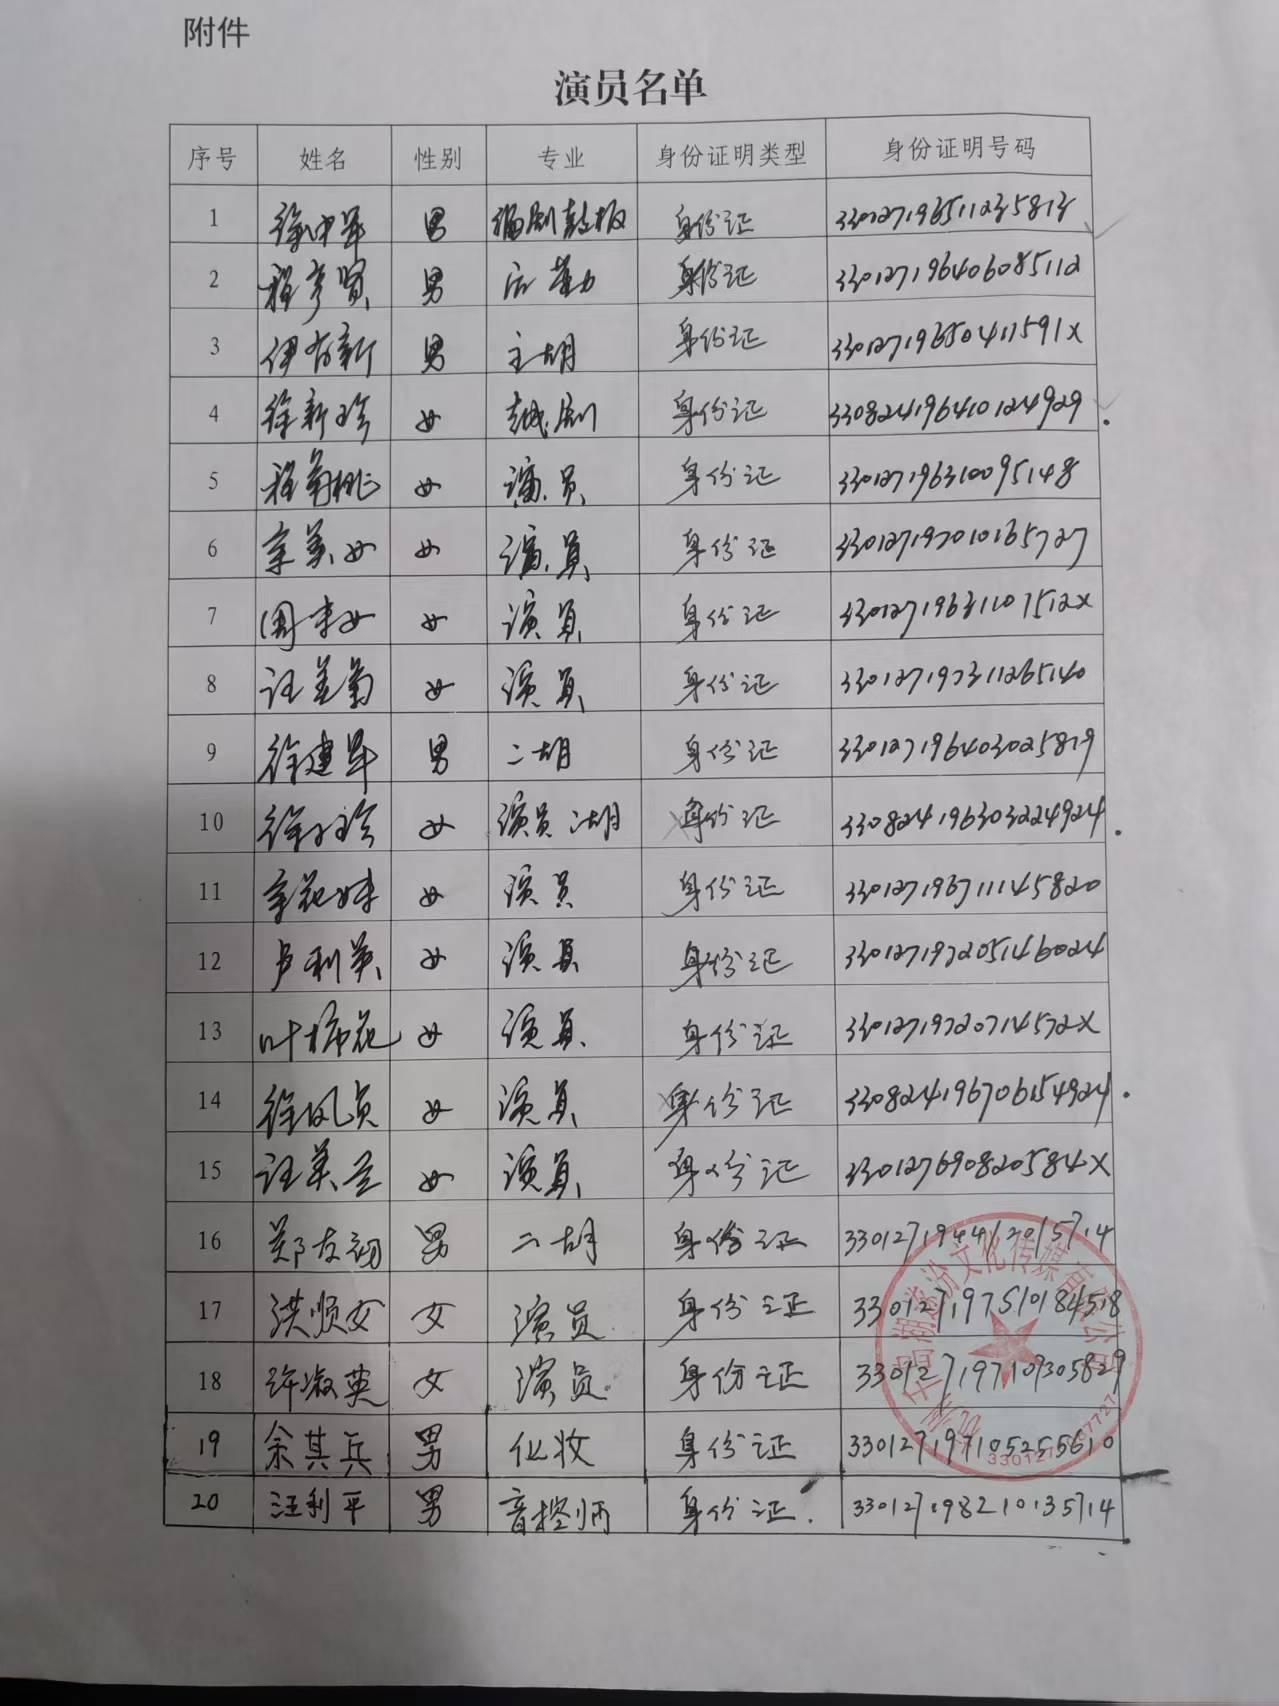 附件
演员名单
序号 姓名 性别 专业 身份证明类型 身份证明号码
1 徐中军 男 编剧鼓板 身份证 330127196511235813
2 程孝贤 男 后勤 身份证 330127196406085112
3 伊有新 男 主胡 身份证 33012719650411591X
4 徐新珍 女 越剧 身份证 330824196410124929
5 程菊桃 女 演员 身份证 330127196310095148
6 余美女 女 演员 身份证 330127197010165727
7 周来女 女 演员 身份证 33012719631107512X
8 汪美菊 女 演员 身份证 330127197311265140
9 徐建军 男 二胡 身份证 330127196403025819
10 徐 珍 女 演员 二胡 身份证 330824196303224924
11 余花妹 女 演员 身份证 330127196711145820
12 卢利英 女 演员 身份证 330127197205146024
13 叶柿花 女 演员 身份证 33012719720714572X
14 徐凤贞 女 演员 身份证 330824196706154924
15 汪美兰 女 演员 身份证 330127690820584X
16 郑友初 男 二胡 身份证 330127194412015714
17 洪顺女 女 演员 身份证 330127197510184518
18 许淑英 女 演员 身份证 330127197107305829
19 余其兵 男 化妆 身份证 330127197105255610
20 汪利平 男 音控师 身份证 330127198210135714